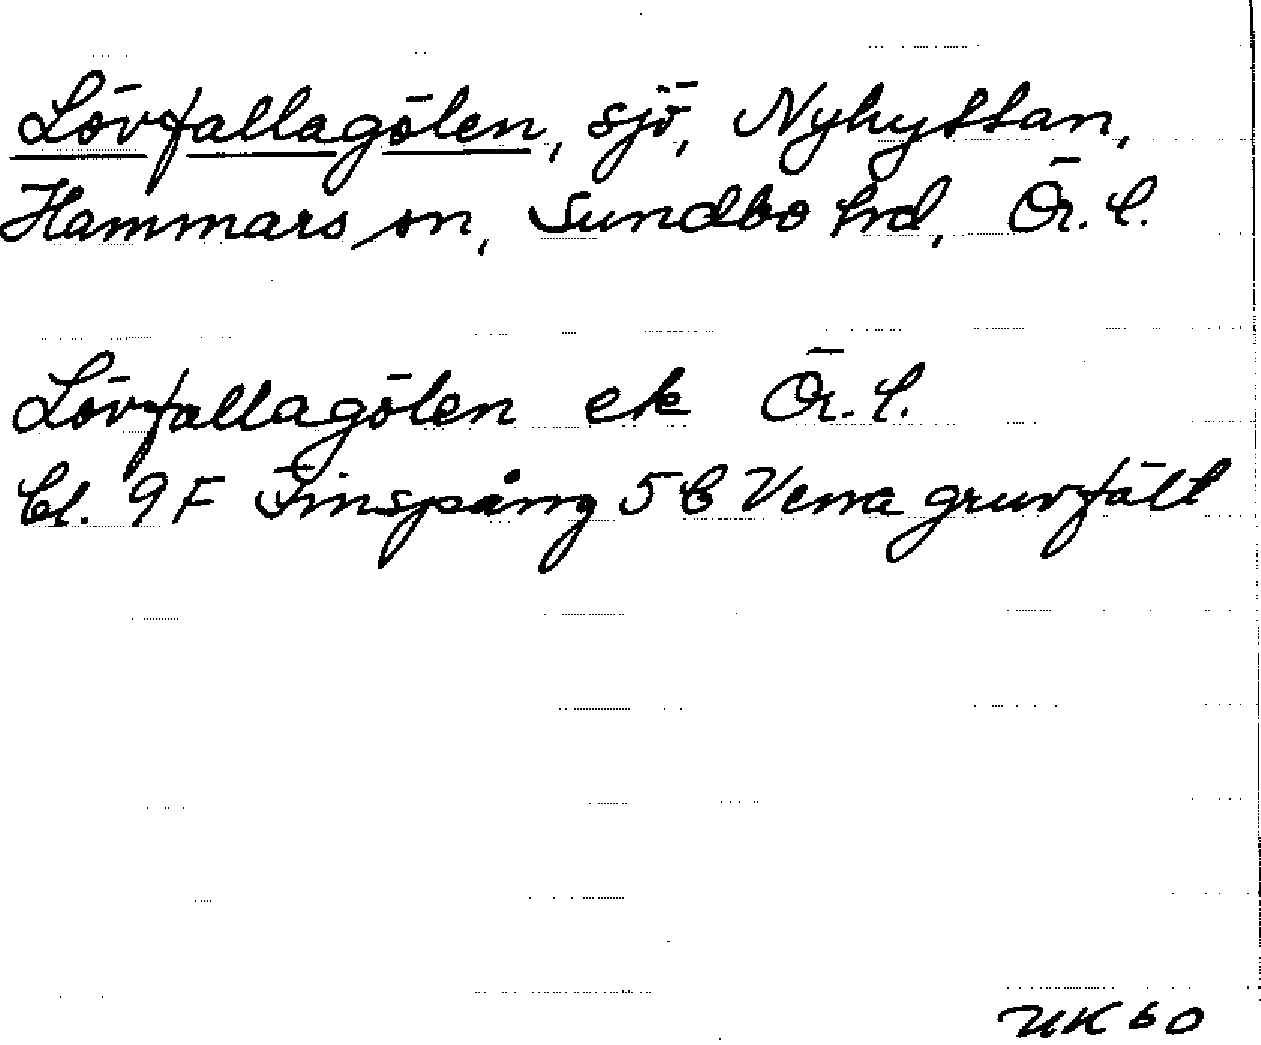 Lövfallagölen, sjö, Nyhyttan,
Hammars sn, Sundbo hrd, Ör. l.
Lövfallagölen ek Ör. l.
bl. 9F Finspång 5b Vena gruvfält
UK 60